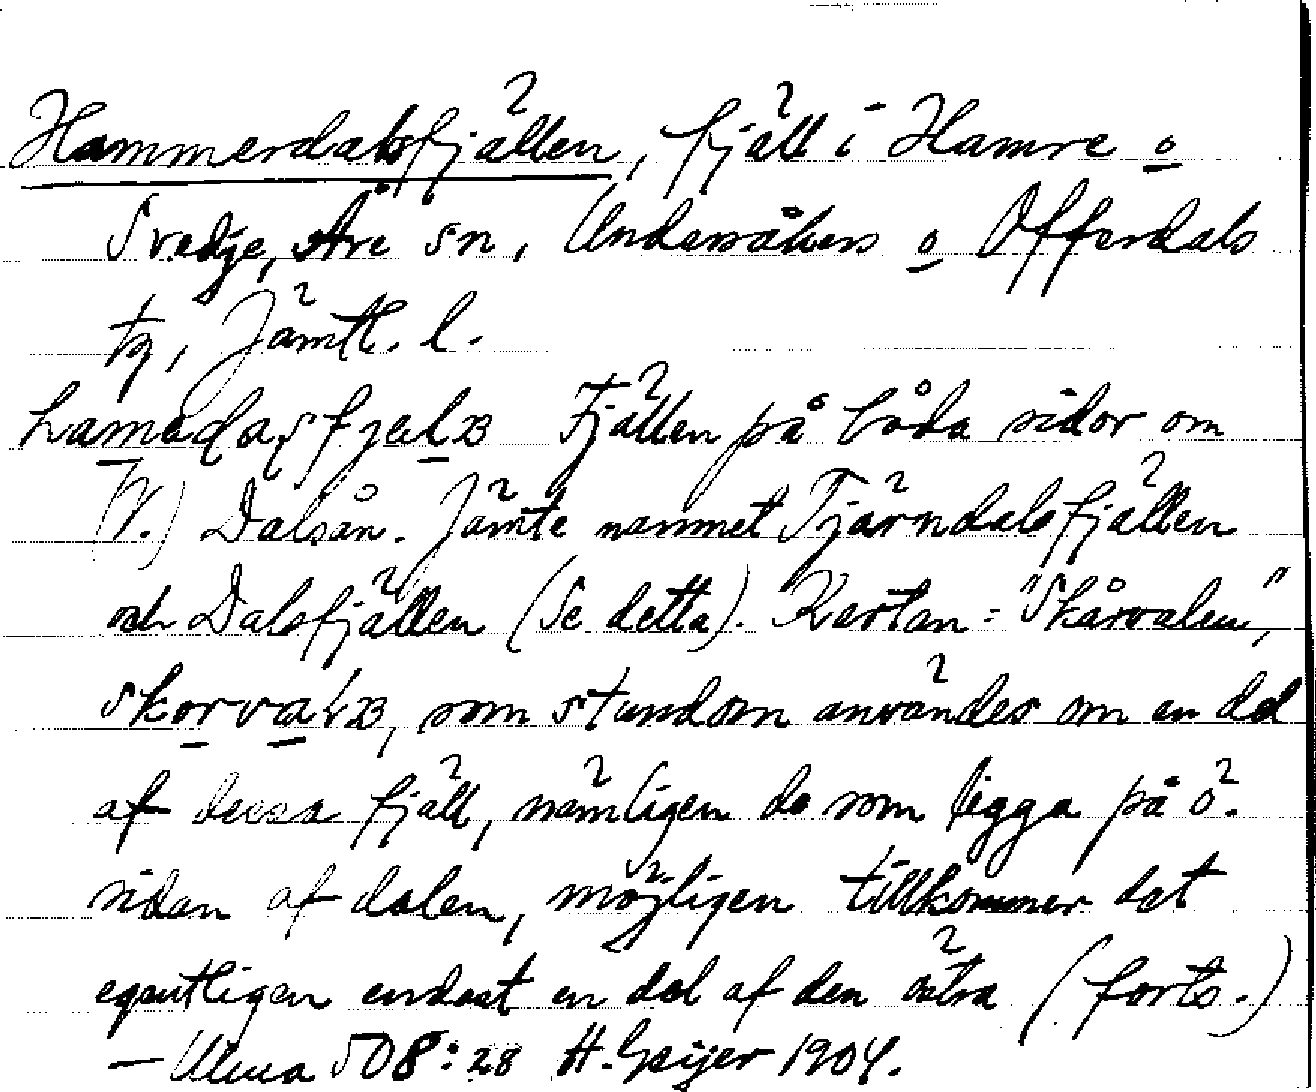 Hammerdalsfjällen, fjäll i Hamre o
Svedje, Åre sn, Undersåkers o Offerdals
tg, Jämtl. l.
Fjällen på båda sidor om
(V.) Dalsån. Jämte namnet Tjärndalsfjällen
och Dalsfjällen (Se detta). Kartan: "Skårvalen",
som stundom användes om en del
af dessa fjäll, nämligen de som ligga på ö.
sidan af dalen, möjligen tillkommer det
egentligen endast en del af den östra (forts.)
— Uluma 508:28 H. Geijer 1904.